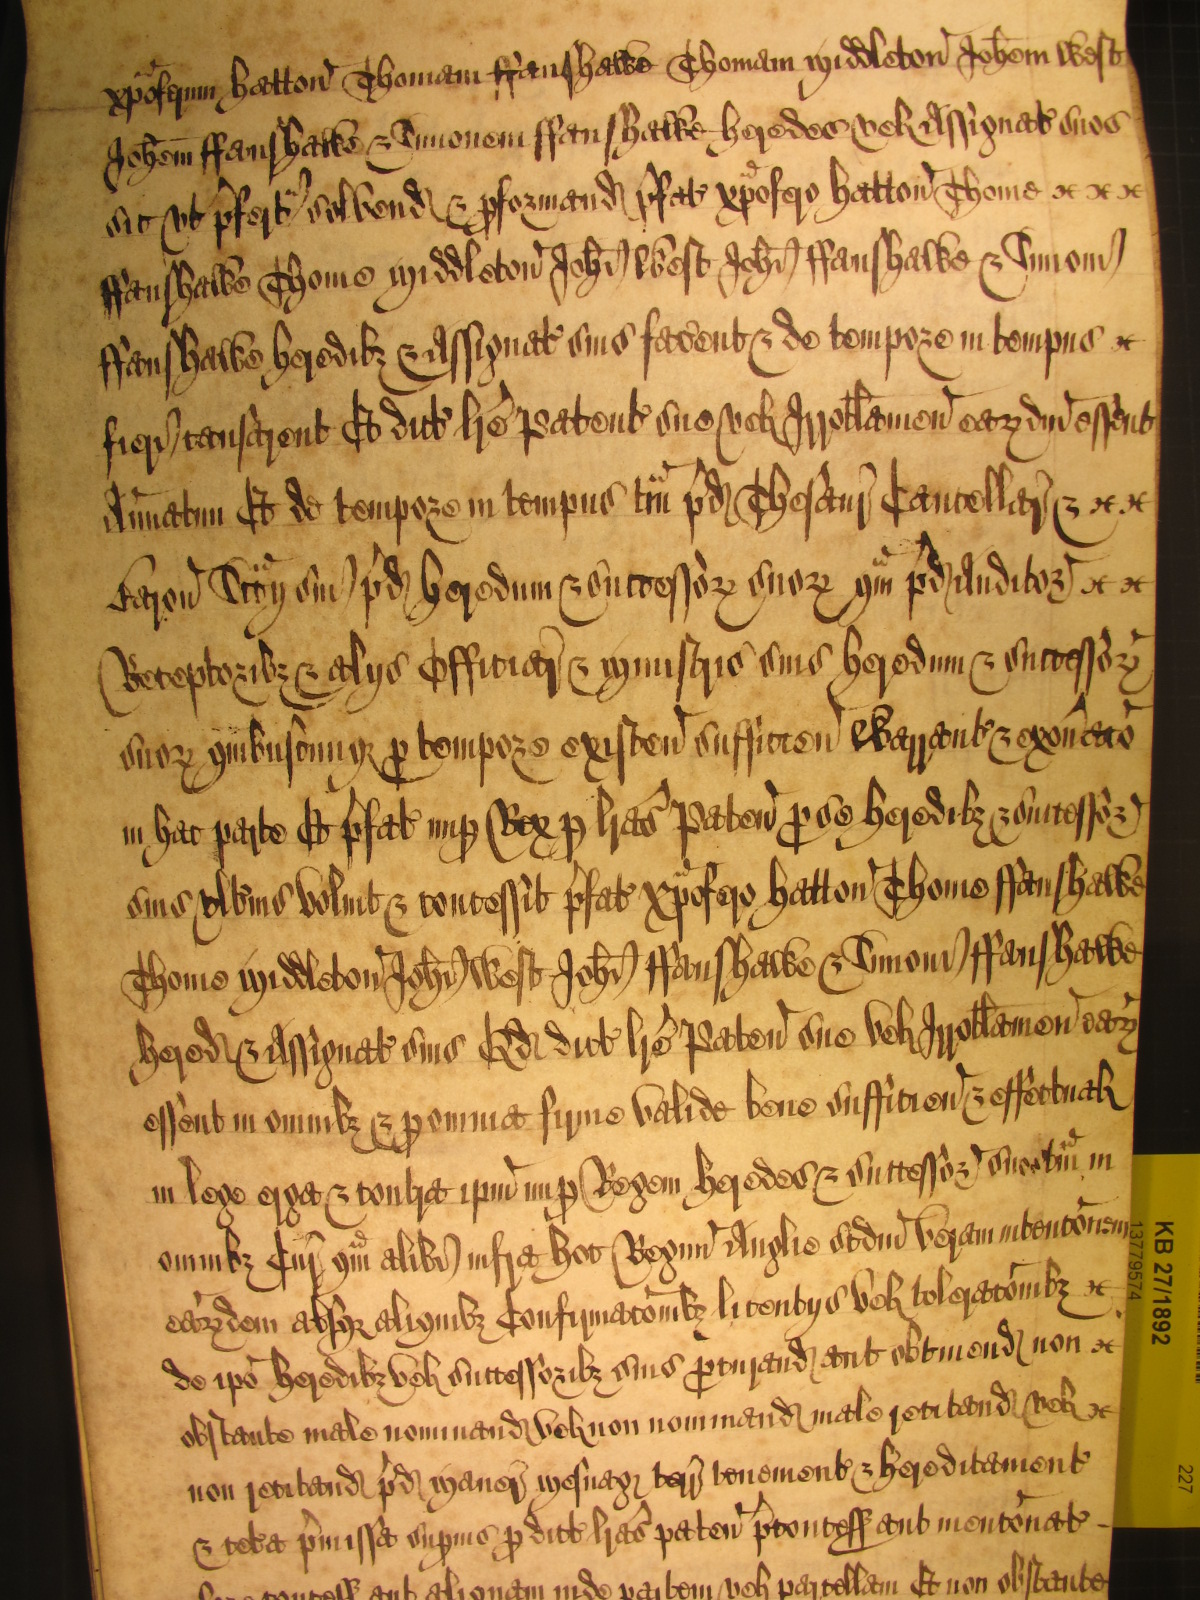 xpoferum hatton Thomam ffanshawe Thomam Middleton Johem West
Johem ffanshawe & Simonem ffanshawe heredes vel Assignat suos
sic ut prfert solvend & pformand prfat xpofero hatton Thome
ffanshawe Thome Middleton Johi West Johi ffanshawe & Simoni
ffanshawe heredibz & Assignat suis facient & de tempore in tempus
fieri causarent Et dict lre Patent sue vel Irrotlamen earzdm essent
Annatim Et de tempore in tempus tm pd Thesaur Cancellar &
Baron Sccij sui pd heredum & successorz suorz qm pd Auditor
Receptoribz & alijs Officiar & Ministris suis heredum & successorz
suorz quibuscunqz p tempore existen sufficien Warrant & exonacō
in hac parte Et prfat nup Rex p lras Paten p se heredibz & successor
suis ulterius voluit & concessit prfat xpofero hatton Thome ffanshawe
Thome Middleton Johi West Johi ffanshawe & Simoni ffanshawe
hered & Assignat suis Qd dict lre Paten sue vel Irrotlamen earz
essent in omnibz & p omnia firme valide bene sufficien & effectual
in lege erga & contra ipm nup Regem heredes & successor suos tm in
omnibz Cur qm alibi infra hoc Regnm Anglie scdm veram intentonem
earzdem absqz aliquibz Confirmatonibz licentijs vel toleratonibz
de ipo heredibz vel successoribz suis pcurand aut obtinend non
obstante male nominand vel non nominand male recitand vel
non recitand pd Maner Mesuag terr tenement & hereditament
& cetera prmissa supius p dict lras paten prconcess aut mentonat
concess aut aliquam inde partem vel parcellam Et non obstante
KB 27/1892
13779574
227